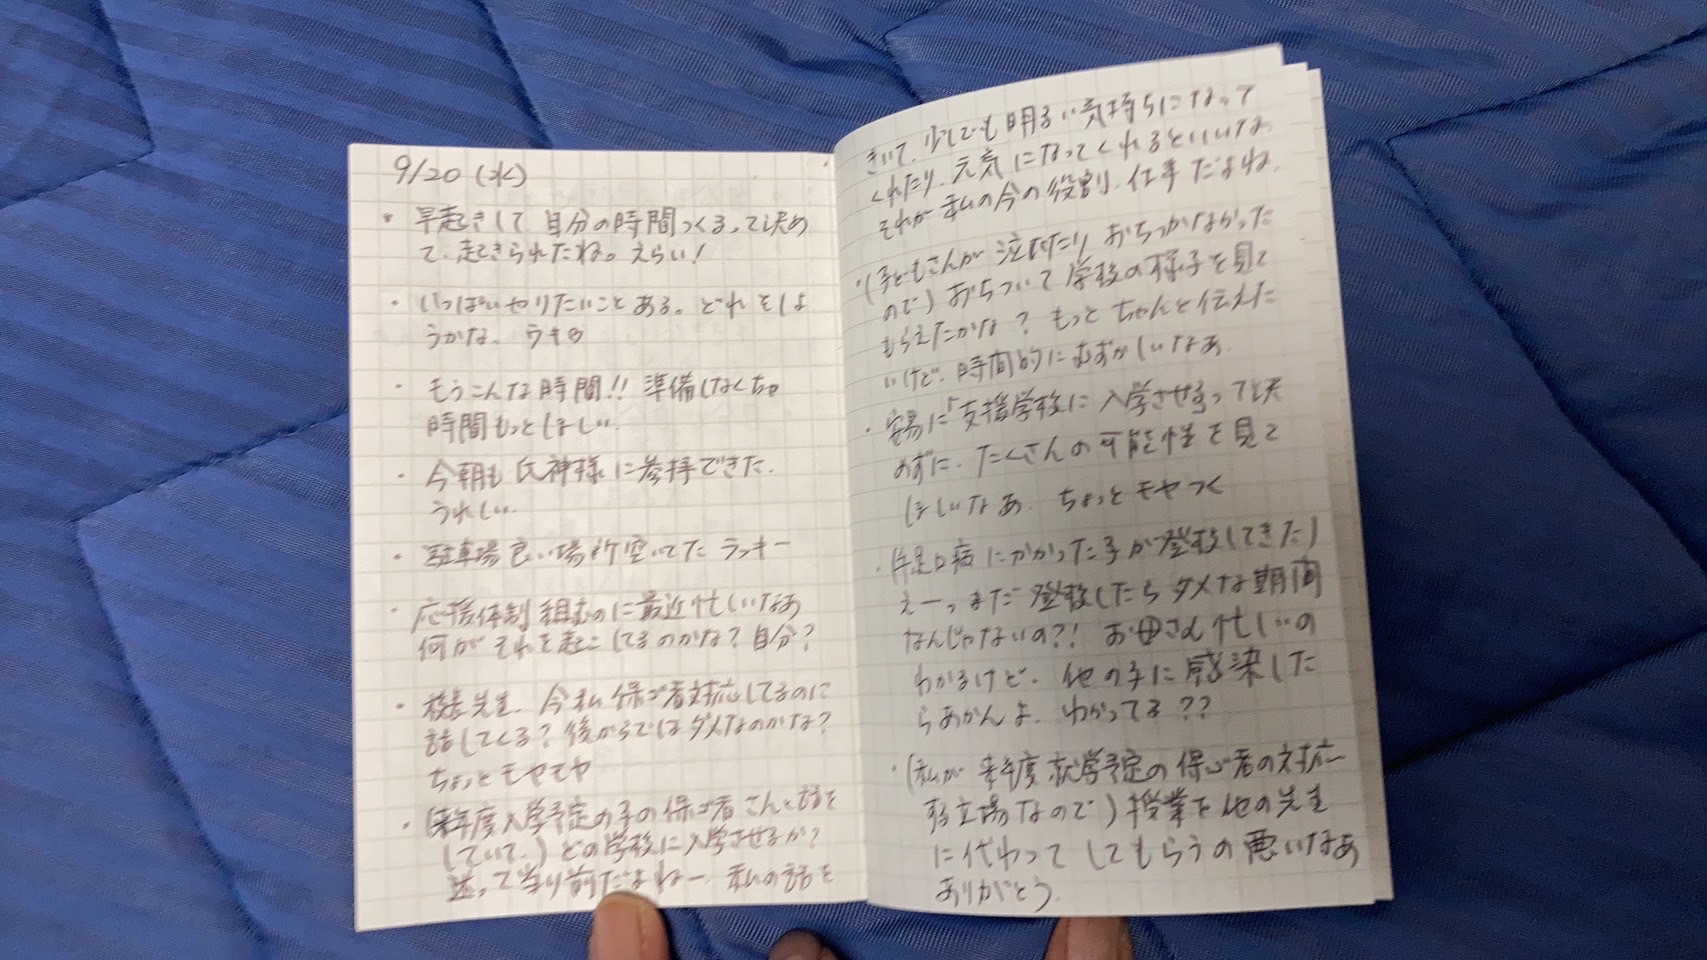 9/20 (水)
・早起きして自分の時間つくるって決め
て、起きられたね。えらい!
・いっぱいやりたいことある。どれをしよ
うかな。
・もうこんな時間!! 準備しなくちゃ
時間もっとほしい。
・今朝も氏神様に参拝できた。
うれしい。
・駐車場良い場所空いてた ラッキー
・応援体制組むのに最近忙しいなあ
何がそれを起こしてるのかな?自分?
・校長先生、今私保ゴ者対応してるのに
話してくる?後からではダメなのかな?
ちょっとモヤモヤ
・(来年度入学予定の子の保ゴ者さんと話を
していて、)どの学校に入学させるか?
迷って当り前だよねー 私の話を
きいて、少しでも明るい気持ちになって
くれたり、元気になってくれるといいな。
それが私の今の役割、仕事だよね。
・(子どもさんが泣いたり おちつかなかった
ので)おちついて学校の様子を見て
もらえたかな? もっとちゃんと伝えた
いけど、時間的にむずかしいなぁ
・安易に「支援学校に入学させるって決
めずに、たくさんの可能性を見て
ほしいなぁ ちょっとモヤつく
・(手足口病にかかった子が登校してきた)
えーっまだ登校したらダメな期間
なんじゃないの?! お母さん忙しいの
わかるけど、他の子に感染した
らあかんよ、わかってる??
・(私が来年度就学予定の保ゴ者の対応
する立場なので)授業を他の先生
に代わってしてもらうの悪いなあ
ありがとう。